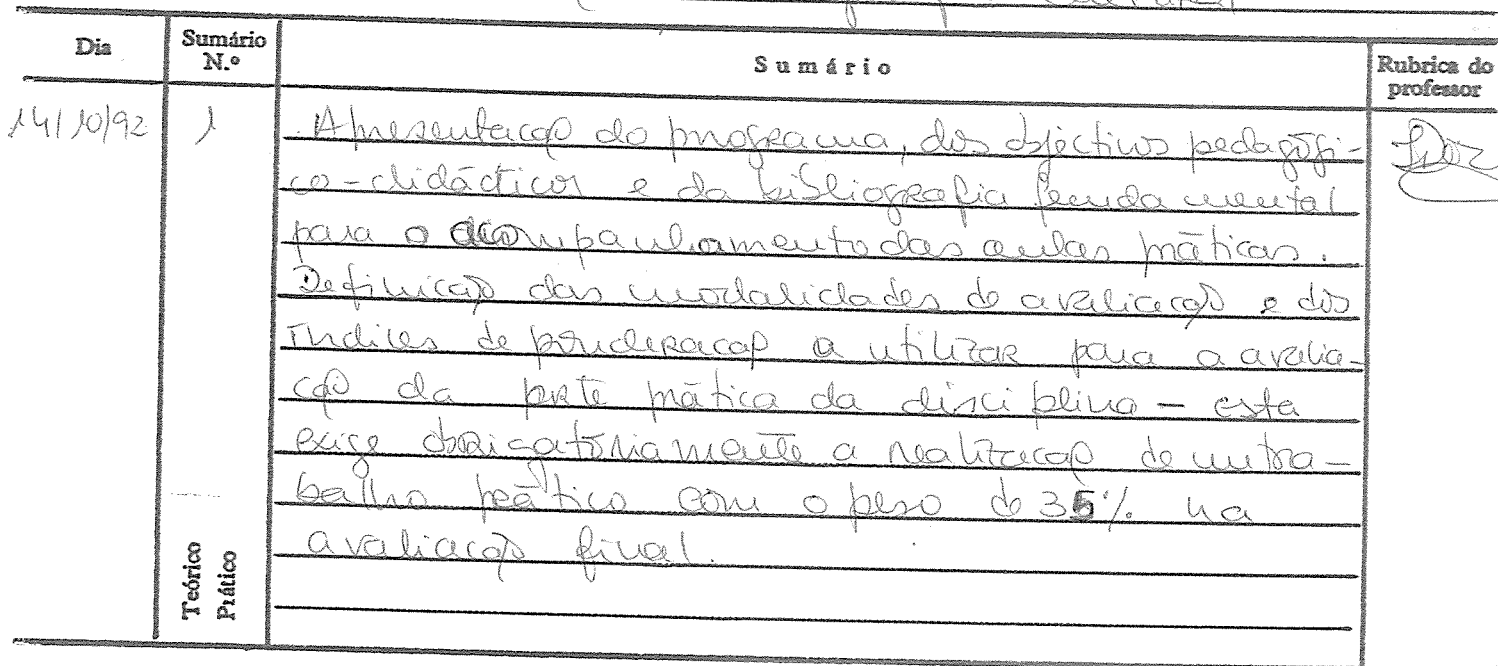 Dia
Sumário N.º
Sumário
Rubrica do professor
14/10/92
1
Apresentação do programa, dos objectivos pedagógi-
co-didácticos e da bibliografia fundamental
para o acompanhamento das aulas práticas.
Definição das modalidades de avaliação e dos
índices de ponderação a utilizar para a avalia-
ção da parte prática da disciplina — esta
exige obrigatóriamente a realização de um tra-
balho prático com o peso de 35% na
avaliação final.
Teórico
Prático